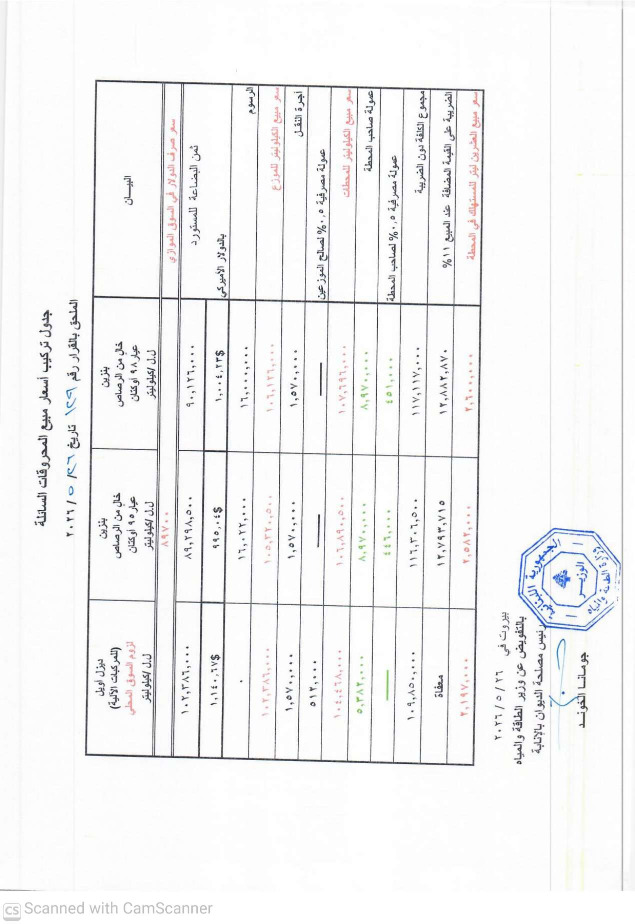 جدول تركيب أسعار مبيع المحروقات السائلة
الملحق بالقرار رقم ١٢٩ تاريخ ٢٦ / ٥ / ٢٠٢٦
البيــان
بنزين
خال من الرصاص
عيار ٩٨ أوكتان
ل.ل/كيلوليتر
بنزين
خال من الرصاص
عيار ٩٥ أوكتان
ل.ل/كيلوليتر
ديزل أويل
(للمركبات الآلية)
لزوم السوق المحلي
ل.ل/كيلوليتر
سعر صرف الدولار في السوق الموازي ٨٩٧٠٠
ثمن البضاعة للمستورد ٩٠,١٢٦,٠٠٠ ٨٩,٢٩٨,٥٠٠ ١٠٢,٣٨٦,٠٠٠
بالدولار الأميركي ١,٠٠٤.٢٣$ ٩٩٥.٠٤$ ١,١٤٠.٦٧$
الرسوم ١٦,٠٠٠,٠٠٠ ١٦,٠٢٢,٠٠٠ ٠
سعر مبيع الكيلوليتر للموزع ١٠٦,١٢٦,٠٠٠ ١٠٥,٣٢٠,٥٠٠ ١٠٢,٣٨٦,٠٠٠
أجرة النقل ١,٥٧٠,٠٠٠ ١,٥٧٠,٠٠٠ ١,٥٧٠,٠٠٠
عمولة مصرفية ٠.٥% لصالح الموزعين — — ٥١٢,٠٠٠
سعر مبيع الكيلوليتر للمحطات ١٠٧,٦٩٦,٠٠٠ ١٠٦,٨٩٠,٥٠٠ ١٠٤,٤٦٨,٠٠٠
عمولة صاحب المحطة ٨,٩٧٠,٠٠٠ ٨,٩٧٠,٠٠٠ ٥,٣٨٢,٠٠٠
عمولة مصرفية ٠.٥% لصاحب المحطة ٤٥١,٠٠٠ ٤٤٦,٠٠٠ —
مجموع الكلفة دون الضريبة ١١٧,١١٧,٠٠٠ ١١٦,٣٠٦,٥٠٠ ١٠٩,٨٥٠,٠٠٠
الضريبة على القيمة المضافة عند المبيع ١١% ١٢,٨٨٢,٨٧٠ ١٢,٧٩٣,٧١٥ معفاة
سعر مبيع العشرين ليتر للمستهلك في المحطة ٢,٦٠٠,٠٠٠ ٢,٥٨٢,٠٠٠ ٢,١٩٧,٠٠٠
بيروت في ٢٦ / ٥ / ٢٠٢٦
بالتفويض عن وزير الطاقة والمياه
رئيس مصلحة الديوان بالإنابة
جومانا الخوند
الجمهورية اللبنانية
الوزير
وزارة الطاقة والمياه
CS Scanned with CamScanner